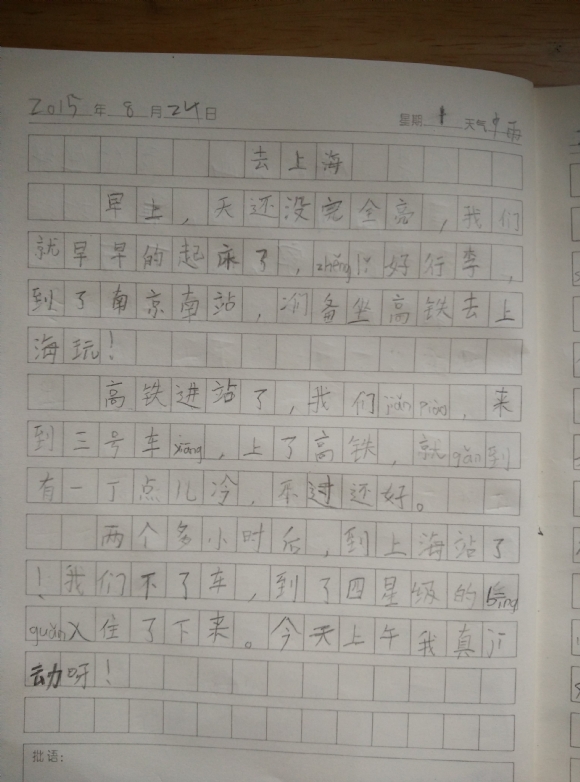 2015年8月24日 星期 1 天气中雨
去上海
早上，天还没完全亮，我们
就早早的起床了，zhěng li好行李，
到了南京南站，准备坐高铁去上
海玩！
高铁进站了，我们jiǎn piào，来
到三号车xiāng，上了高铁，就gǎn到
有一丁点儿冷，不过还好。
两个多小时后，到上海站了
！我们下了车，到了四星级的bīng
guǎn入住了下来。今天上午我真
动呀！
批语：